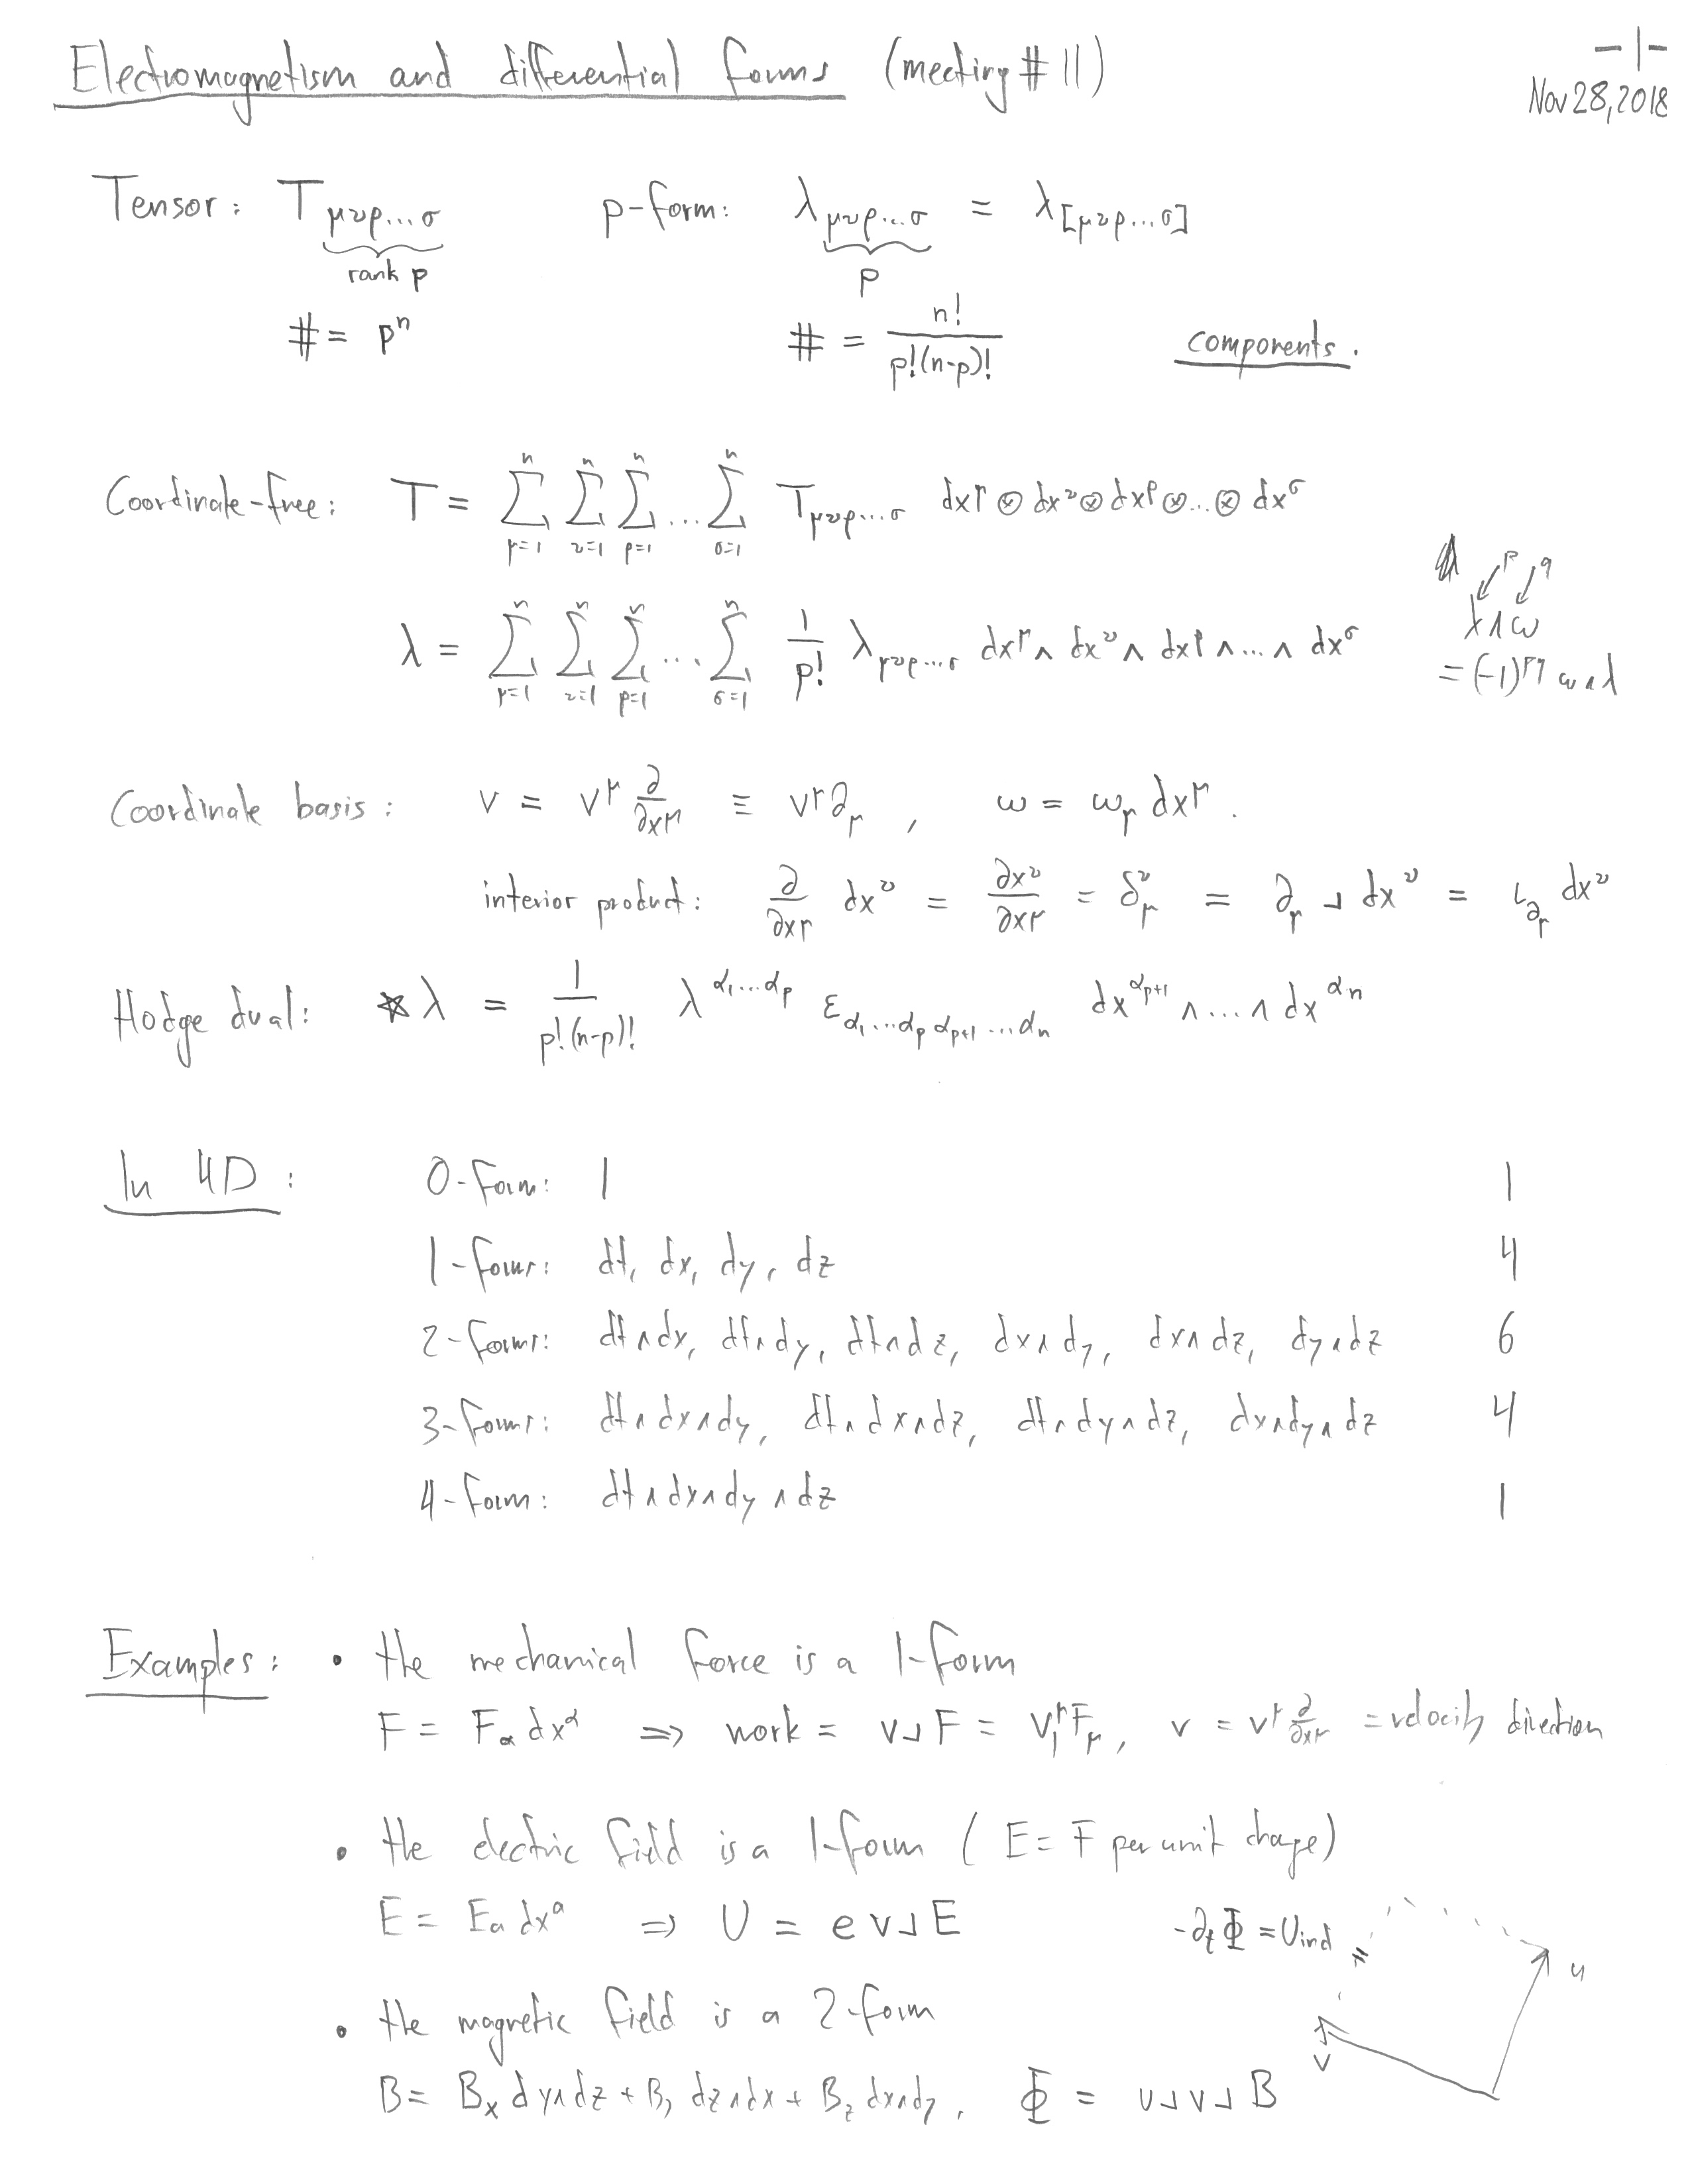 Electromagnetism and differential forms (meeting # 11)
-1-
Nov 28, 2018
Tensor: T_{μνρ...σ} p-form: λ_{μνρ...σ} = λ_{[μνρ...σ]}
rank p p
# = p^n # = n!/(p!(n-p)!) components.
Coordinate-free: T = Σ_{μ=1}^n Σ_{ν=1}^n Σ_{ρ=1}^n ... Σ_{σ=1}^n T_{μνρ...σ} dx^μ ⊗ dx^ν ⊗ dx^ρ ⊗ ... ⊗ dx^σ
λ = Σ_{μ=1}^n Σ_{ν=1}^n Σ_{ρ=1}^n ... Σ_{σ=1}^n 1/p! λ_{μνρ...σ} dx^μ ∧ dx^ν ∧ dx^ρ ∧ ... ∧ dx^σ
p q
λ ∧ ω
= (-1)^{pq} ω ∧ λ
Coordinate basis: v = v^μ ∂/∂x^μ ≡ v^μ ∂_μ , ω = ω_μ dx^μ .
interior product: ∂/∂x^μ dx^ν = ∂x^ν/∂x^μ = δ^ν_μ = ∂_μ ⌟ dx^ν = ι_{∂_μ} dx^ν
Hodge dual: ⋆λ = 1/(p!(n-p)!) λ^{α_1...α_p} ε_{α_1...α_p α_{p+1}...α_n} dx^{α_{p+1}} ∧ ... ∧ dx^{α_n}
In 4D: 0-form: 1 1
1-forms: dt, dx, dy, dz 4
2-forms: dt∧dx, dt∧dy, dt∧dz, dx∧dy, dx∧dz, dy∧dz 6
3-forms: dt∧dx∧dy, dt∧dx∧dz, dt∧dy∧dz, dx∧dy∧dz 4
4-form: dt∧dx∧dy∧dz 1
Examples: • the mechanical force is a 1-form
F = F_α dx^α ⇒ work = v⌟F = v^μ F_μ, v = v^μ ∂/∂x^μ = velocity direction
• the electric field is a 1-form ( E = F per unit charge)
E = E_a dx^a ⇒ U = e v⌟E
-∂_t Φ = U_ind
u
• the magnetic field is a 2-form
v
B = B_x dy∧dz + B_y dz∧dx + B_z dx∧dy, Φ = u⌟v⌟B